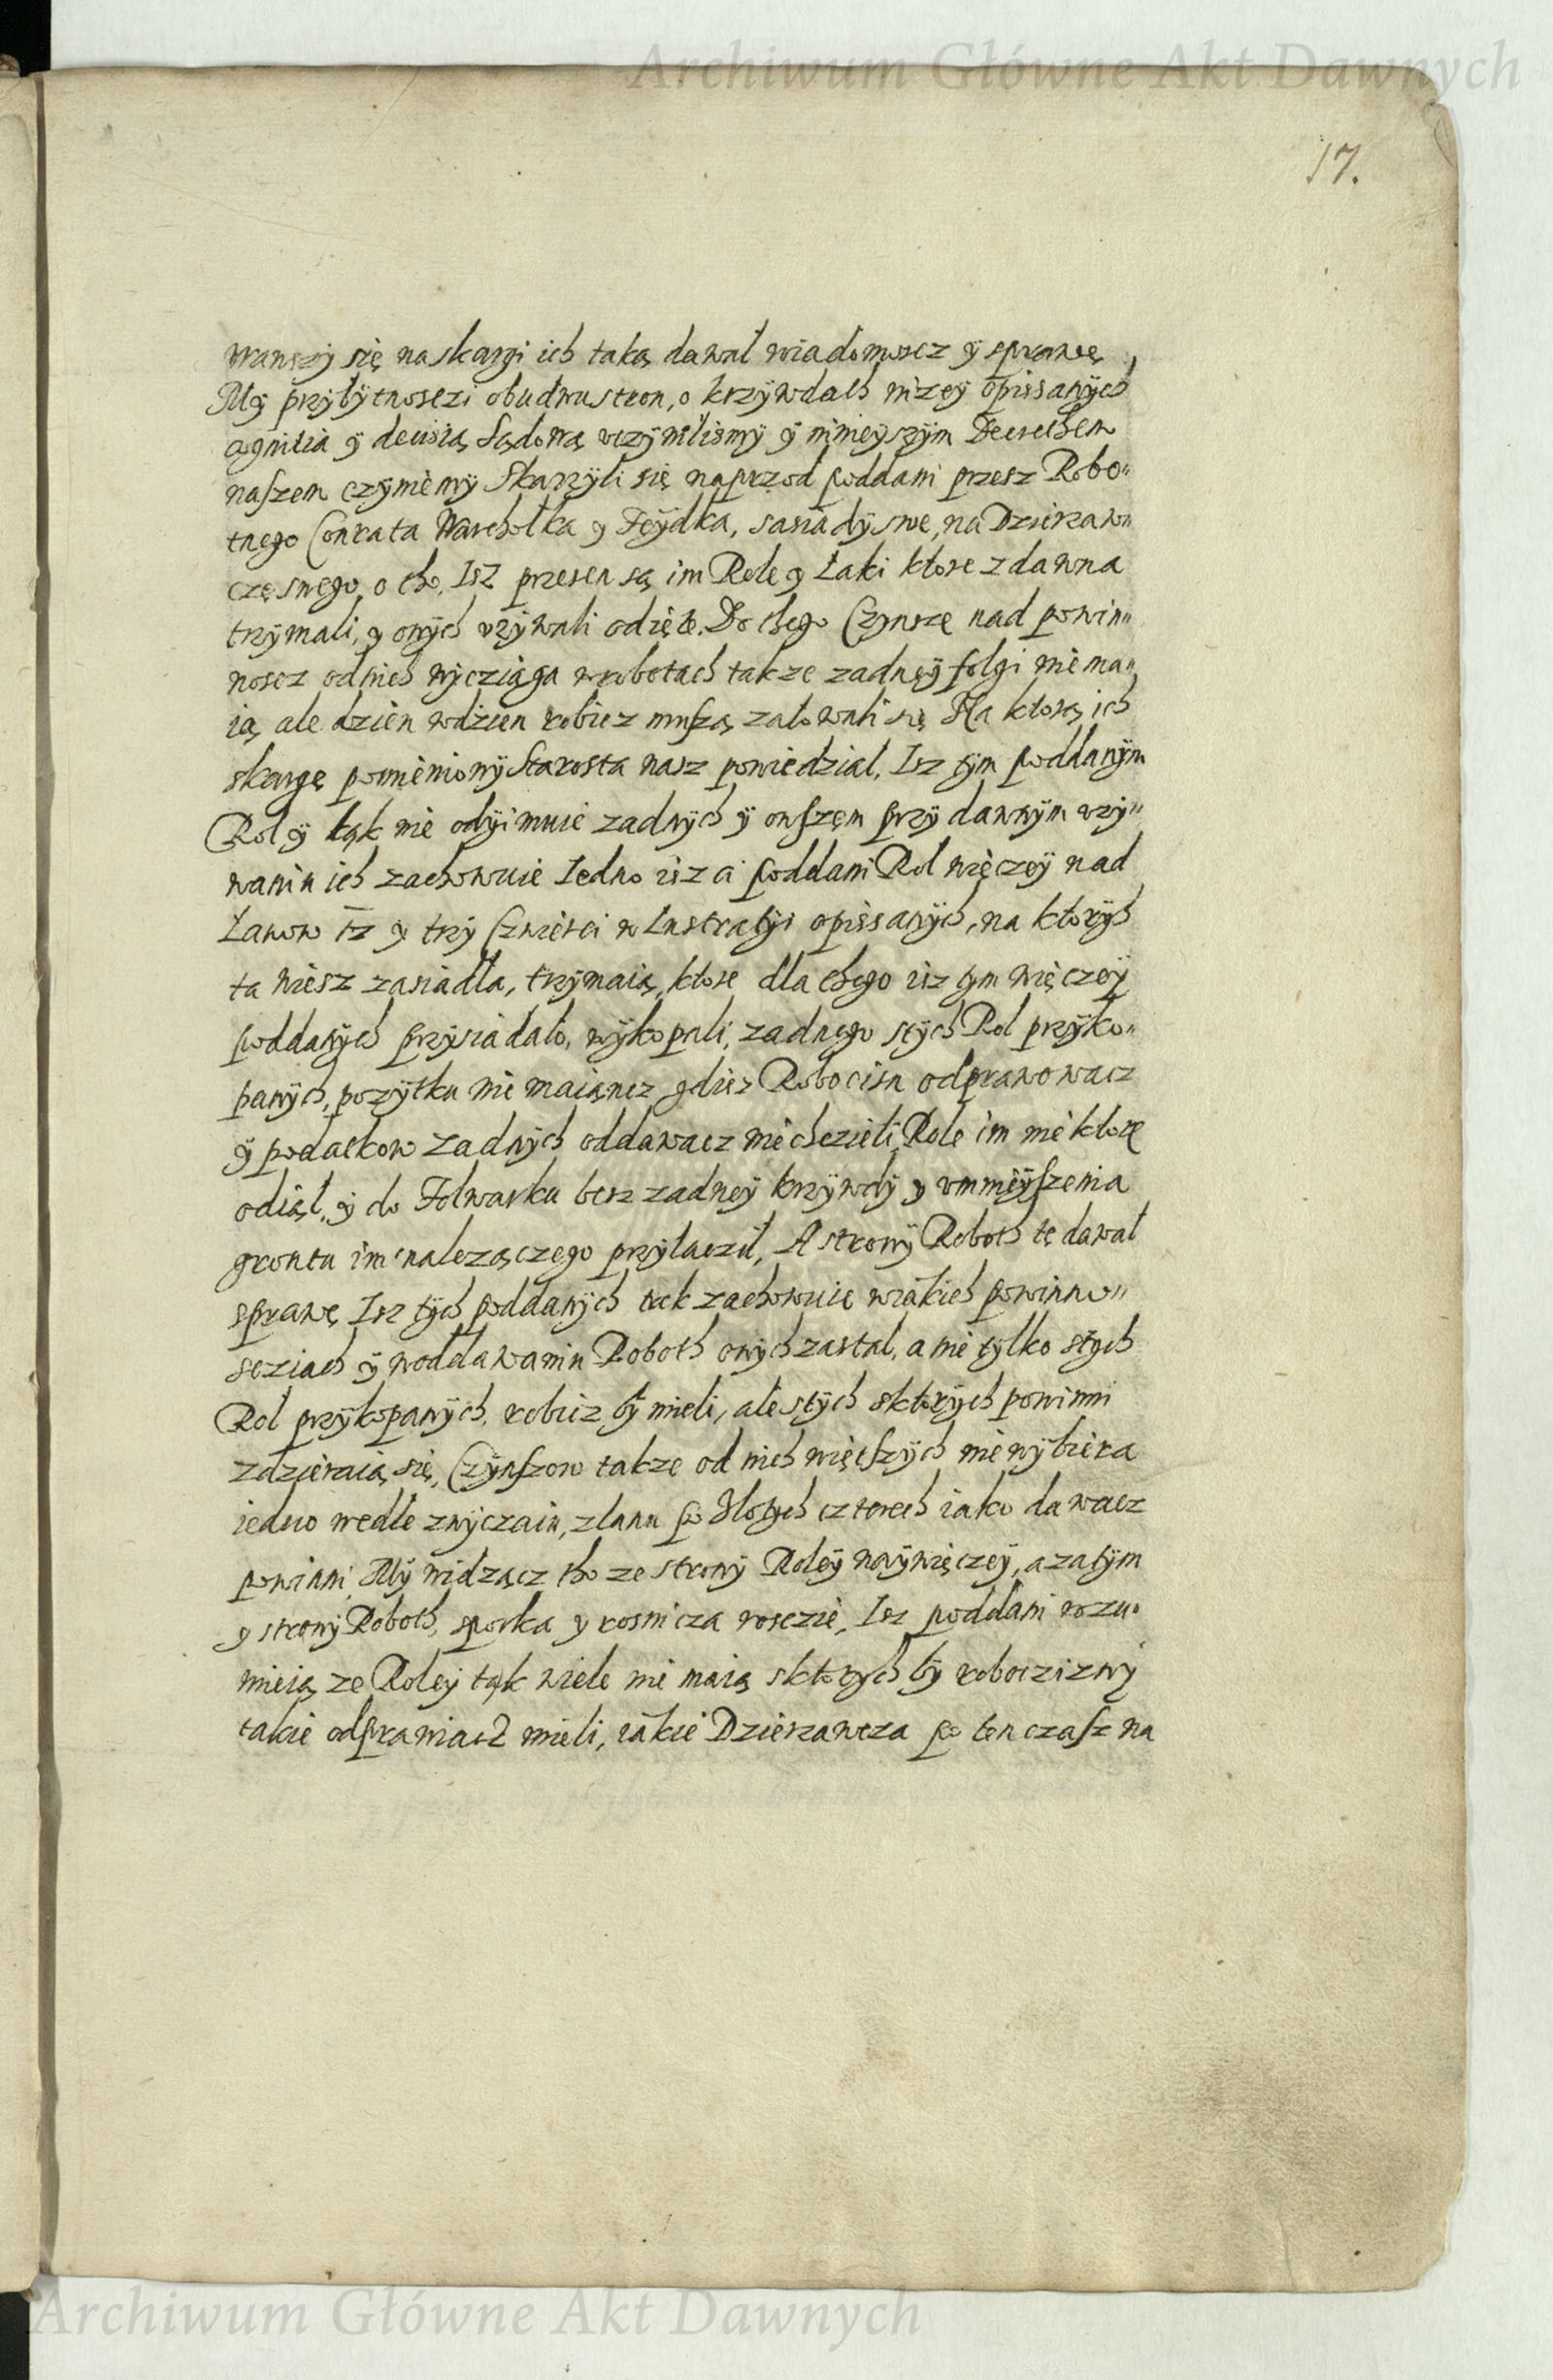 Archiwum Główne Akt Dawnych
17.
wawszy się na skargi ich taką dawał wiadomoscz y sprawę
My przy bytnosczi obudwu stron, o krzywdach nizey opissanych
agnitią y decisią Sądową uczynilismy y ninieyszym Decrethem
naszem czyniemy Skarzyli się naprzod poddani przesz Robo„
tnego Conrata Warcholka y Feydka, sasiady swe, na Dzierzaw„
częsnego o tho, Isz przesen są im Role y Łaki ktore z dawna
trzymali, y onych uzywali odięte. Do thego Czynsze nad powin„
noscz od nich wycziąga w robotach takze zadney folgi nie ma„
ią, ale dzien w dzien robicz muszą zalowali się Na ktorą ich
skargę pomieniony Starosta nasz powiedzial, Isz tym poddanym
Rol y łąk nie odyimuie zadnych y owszem przy dawnym uzy„
waniu ich zachowuie Iedno isz ci poddani Rol więczey nad
Łanow y trzy Czwierci w Lustratiji opissanych, na ktorych
ta wiesz zasiadła, trzymaią, ktore dla thego isz tym więczey
poddanych przysiadało, wykopali, zadnego s tych Rol przyko„
panych, pozytku nie maiącz gdiesz Robocisn odprawowacz
y podatkow zadnych oddawacz nie chczieli, Role im nie ktore
odiął, y do Folwarku besz zadney krzywdy y umnieyszenia
grontu im nalezączego przyłacził, A strony Roboth tę dawał
sprawę Isz tych poddanych tak zachowuie w iakich powinno„
scziach y w oddawaniu Roboth onych zastał, a nie tylko s tych
Rol przykopanych, robicz by mieli, ale s tych s ktorych powinni
zdzieraią się, Czynszow takze od nich więtszych nie wybiera
iedno wedle zwyczaiu, z łanu po złotych czterech iako dawacz
powinni, My widzącz tho ze strony Roley naywięczey, a zatym
y strony Roboth, sporka y rosnicza roscziе, Isz poddani rozu„
mieią ze Roley tąk wiele nie maią s ktorych by roboczizny
takie odprawiacz mieli, iakie Dzierzawcza po ten czasz na
Archiwum Główne Akt Dawnych